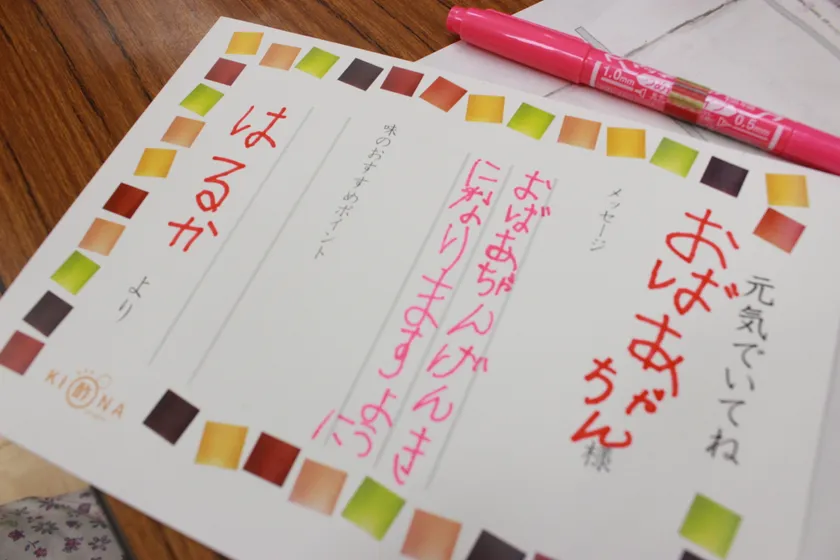 元気でいてね
おばあちゃん様
メッセージ
おばあちゃんげんき
になりますように
味のおすすめポイント
はるか
より
KI酢NA
1.0mm
0.5mm